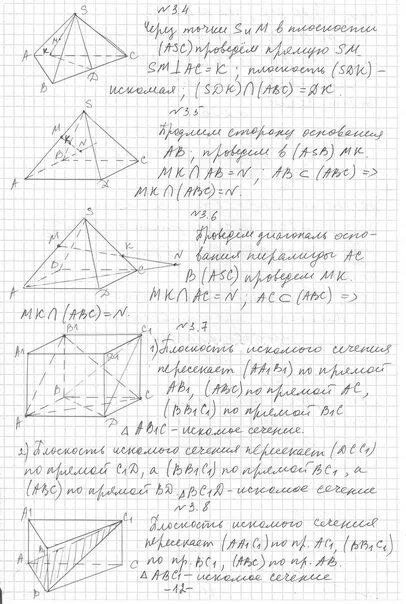 №3.4
Через точки S и M в плоскости
(ASC) проведём прямую SM
SM⊥AC=K; плоскость (SDK) –
искомая; (SDK)∩(ABC)=DK.
№3.5
Продлим сторону основания
AB; проведем в (ASB) MK.
MK∩AB=N; AB⊂(ABC) =>
MK∩(ABC)=N.
№3.6
Проведем диагональ осно-
вания пирамиды AC
В (ASC) проведем MK.
MK∩AC=N; AC⊂(ABC) =>
MK∩(ABC)=N.
№3.7
1) Плоскость искомого сечения
пересекает (AA1B1) по прямой
AB1, (ABC) по прямой AC,
(BB1C1) по прямой B1C
△AB1C – искомое сечение.
2) Плоскость искомого сечения пересекает (DCC1)
по прямой C1D, а (BB1C1) по прямой BC1, а
(ABC) по прямой BD. △BC1D – искомое сечение
№3.8
Плоскость искомого сечения
пересекает (AA1C1) по пр. AC1, (BB1C1)
по пр. BC1, (ABC) по пр. AB.
△ABC1 – искомое сечение
-12-